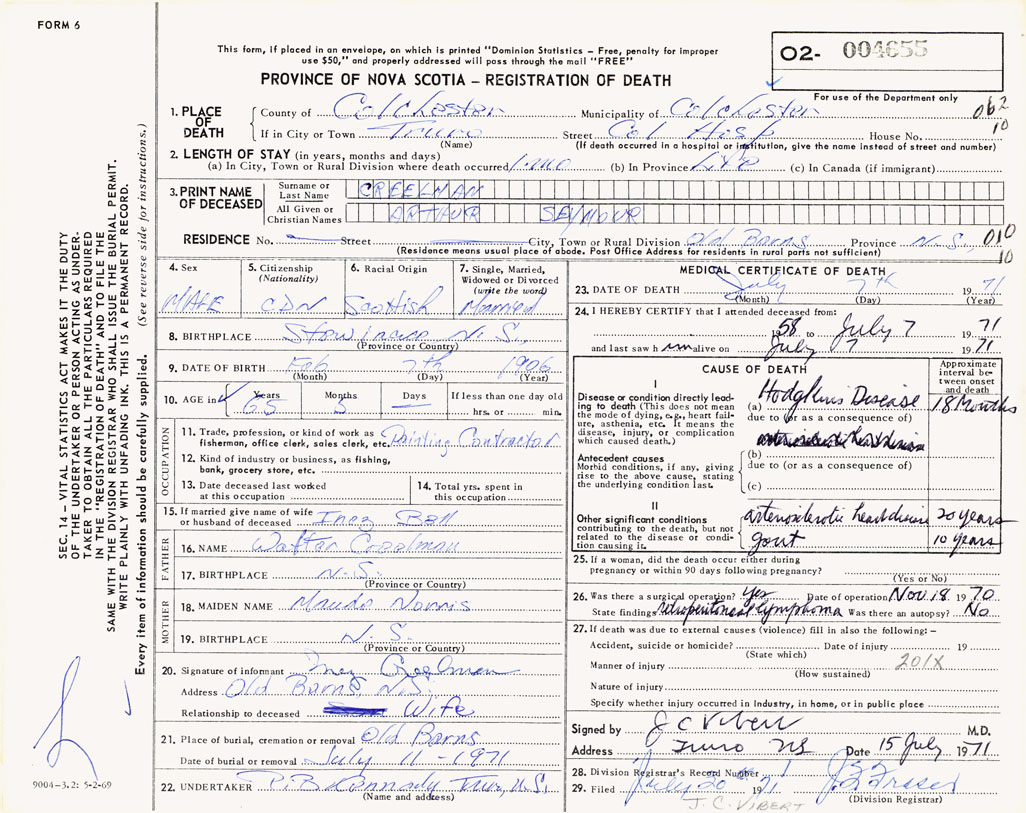 FORM 6
This form, if placed in an envelope, on which is printed "Dominion Statistics – Free, penalty for improper
use $50," and properly addressed will pass through the mail "FREE"
PROVINCE OF NOVA SCOTIA – REGISTRATION OF DEATH
O2- 004655
For use of the Department only
1. PLACE OF DEATH County of Colchester Municipality of Colchester 062
If in City or Town Truro Street Col Hosp House No. 10
(Name) (If death occurred in a hospital or institution, give the name instead of street and number)
2. LENGTH OF STAY (in years, months and days)
(a) In City, Town or Rural Division where death occurred 1 mo (b) In Province Life (c) In Canada (if immigrant)
3. PRINT NAME OF DECEASED Surname or Last Name CREELMAN
All Given or Christian Names ARTHUR SEYMOUR
RESIDENCE No. Street City, Town or Rural Division Old Barns Province N.S. 010
(Residence means usual place of abode. Post Office Address for residents in rural parts not sufficient) 10
4. Sex MALE
5. Citizenship (Nationality) CDN
6. Racial Origin Scottish
7. Single, Married, Widowed or Divorced (write the word) Married
8. BIRTHPLACE Stewiacke N.S.
(Province or Country)
9. DATE OF BIRTH Feb 7th 1906
(Month) (Day) (Year)
10. AGE in Years 65 Months 5 Days — If less than one day old
hrs. or min.
OCCUPATION
11. Trade, profession, or kind of work as Painting Contractor
fisherman, office clerk, sales clerk, etc.
12. Kind of industry or business, as fishing,
bank, grocery store, etc.
13. Date deceased last worked
at this occupation
14. Total yrs. spent in
this occupation
15. If married give name of wife
or husband of deceased Inez Bell
FATHER
16. NAME Walter Creelman
17. BIRTHPLACE N.S.
(Province or Country)
MOTHER
18. MAIDEN NAME Maude Norris
19. BIRTHPLACE N.S.
(Province or Country)
20. Signature of informant Inez Creelman
Address Old Barns, N.S.
Relationship to deceased Wife
21. Place of burial, cremation or removal Old Barns
Date of burial or removal July 11 - 1971
22. UNDERTAKER Truro, N.S.
(Name and address)
MEDICAL CERTIFICATE OF DEATH
23. DATE OF DEATH July 7th 1971
(Month) (Day) (Year)
24. I HEREBY CERTIFY that I attended deceased from:
58 to July 7 1971
and last saw h im alive on July 7 1971
CAUSE OF DEATH
Approximate interval between onset and death
I
Disease or condition directly leading to death (This does not mean the mode of dying, e.g., heart failure, asthenia, etc. It means the disease, injury, or complication which caused death.)
(a) Hodgkins Disease 18 Months
due to (or as a consequence of)
Antecedent causes
Morbid conditions, if any, giving rise to the above cause, stating the underlying condition last.
(b)
due to (or as a consequence of)
(c)
II
Other significant conditions
contributing to the death, but not related to the disease or condition causing it.
arteriosclerotic heart disease 20 years
gout 10 years
25. If a woman, did the death occur either during
pregnancy or within 90 days following pregnancy?
(Yes or No)
26. Was there a surgical operation? Yes Date of operation Nov 18 1970
State findings retroperitoneal lymphoma Was there an autopsy? No
27. If death was due to external causes (violence) fill in also the following: –
Accident, suicide or homicide? Date of injury 19
(State which)
Manner of injury 201X
(How sustained)
Nature of injury
Specify whether injury occurred in industry, in home, or in public place
Signed by J C Vibert M.D.
Address Truro NS Date 15 July 1971
28. Division Registrar's Record Number
29. Filed July 20 1971
(Division Registrar)
J. C. VIBERT
SEC. 14 – VITAL STATISTICS ACT MAKES IT THE DUTY
OF THE UNDERTAKER OR PERSON ACTING AS UNDER-
TAKER TO OBTAIN ALL THE PARTICULARS REQUIRED
IN THE "REGISTRATION OF DEATH" AND TO FILE THE
SAME WITH THE DIVISION REGISTRAR WHO SHALL ISSUE THE BURIAL PERMIT.
WRITE PLAINLY WITH UNFADING INK. THIS IS A PERMANENT RECORD.
Every item of information should be carefully supplied. (See reverse side for instructions.)
9004-3.2: 5-2-69